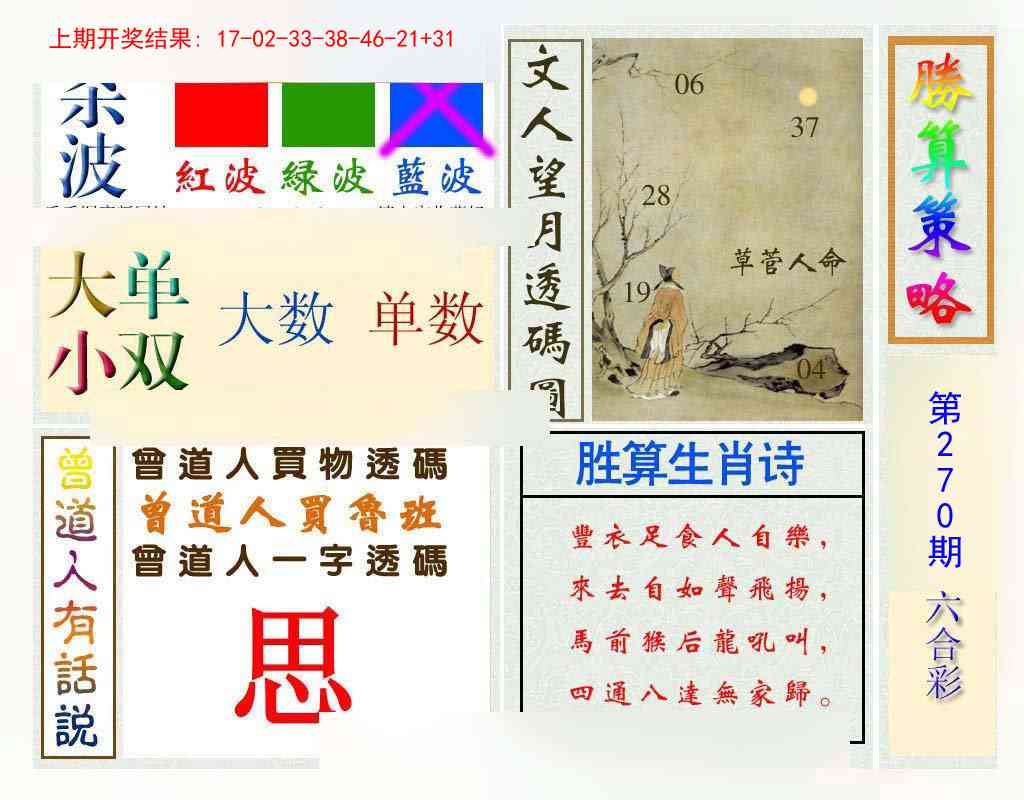 上期开奖结果: 17-02-33-38-46-21+31
波
紅波 绿波 藍波
大单
小双
大数 单数
文人望月透碼圖
06
37
28
草菅人命
19
04
勝算策略
第270期
六合彩
曾道人有話説
曾道人買物透碼
曾道人買魯班
曾道人一字透碼
思
胜算生肖诗
豐衣足食人自樂，
來去自如聲飛揚，
馬前猴后龍吼叫，
四通八達無家歸。